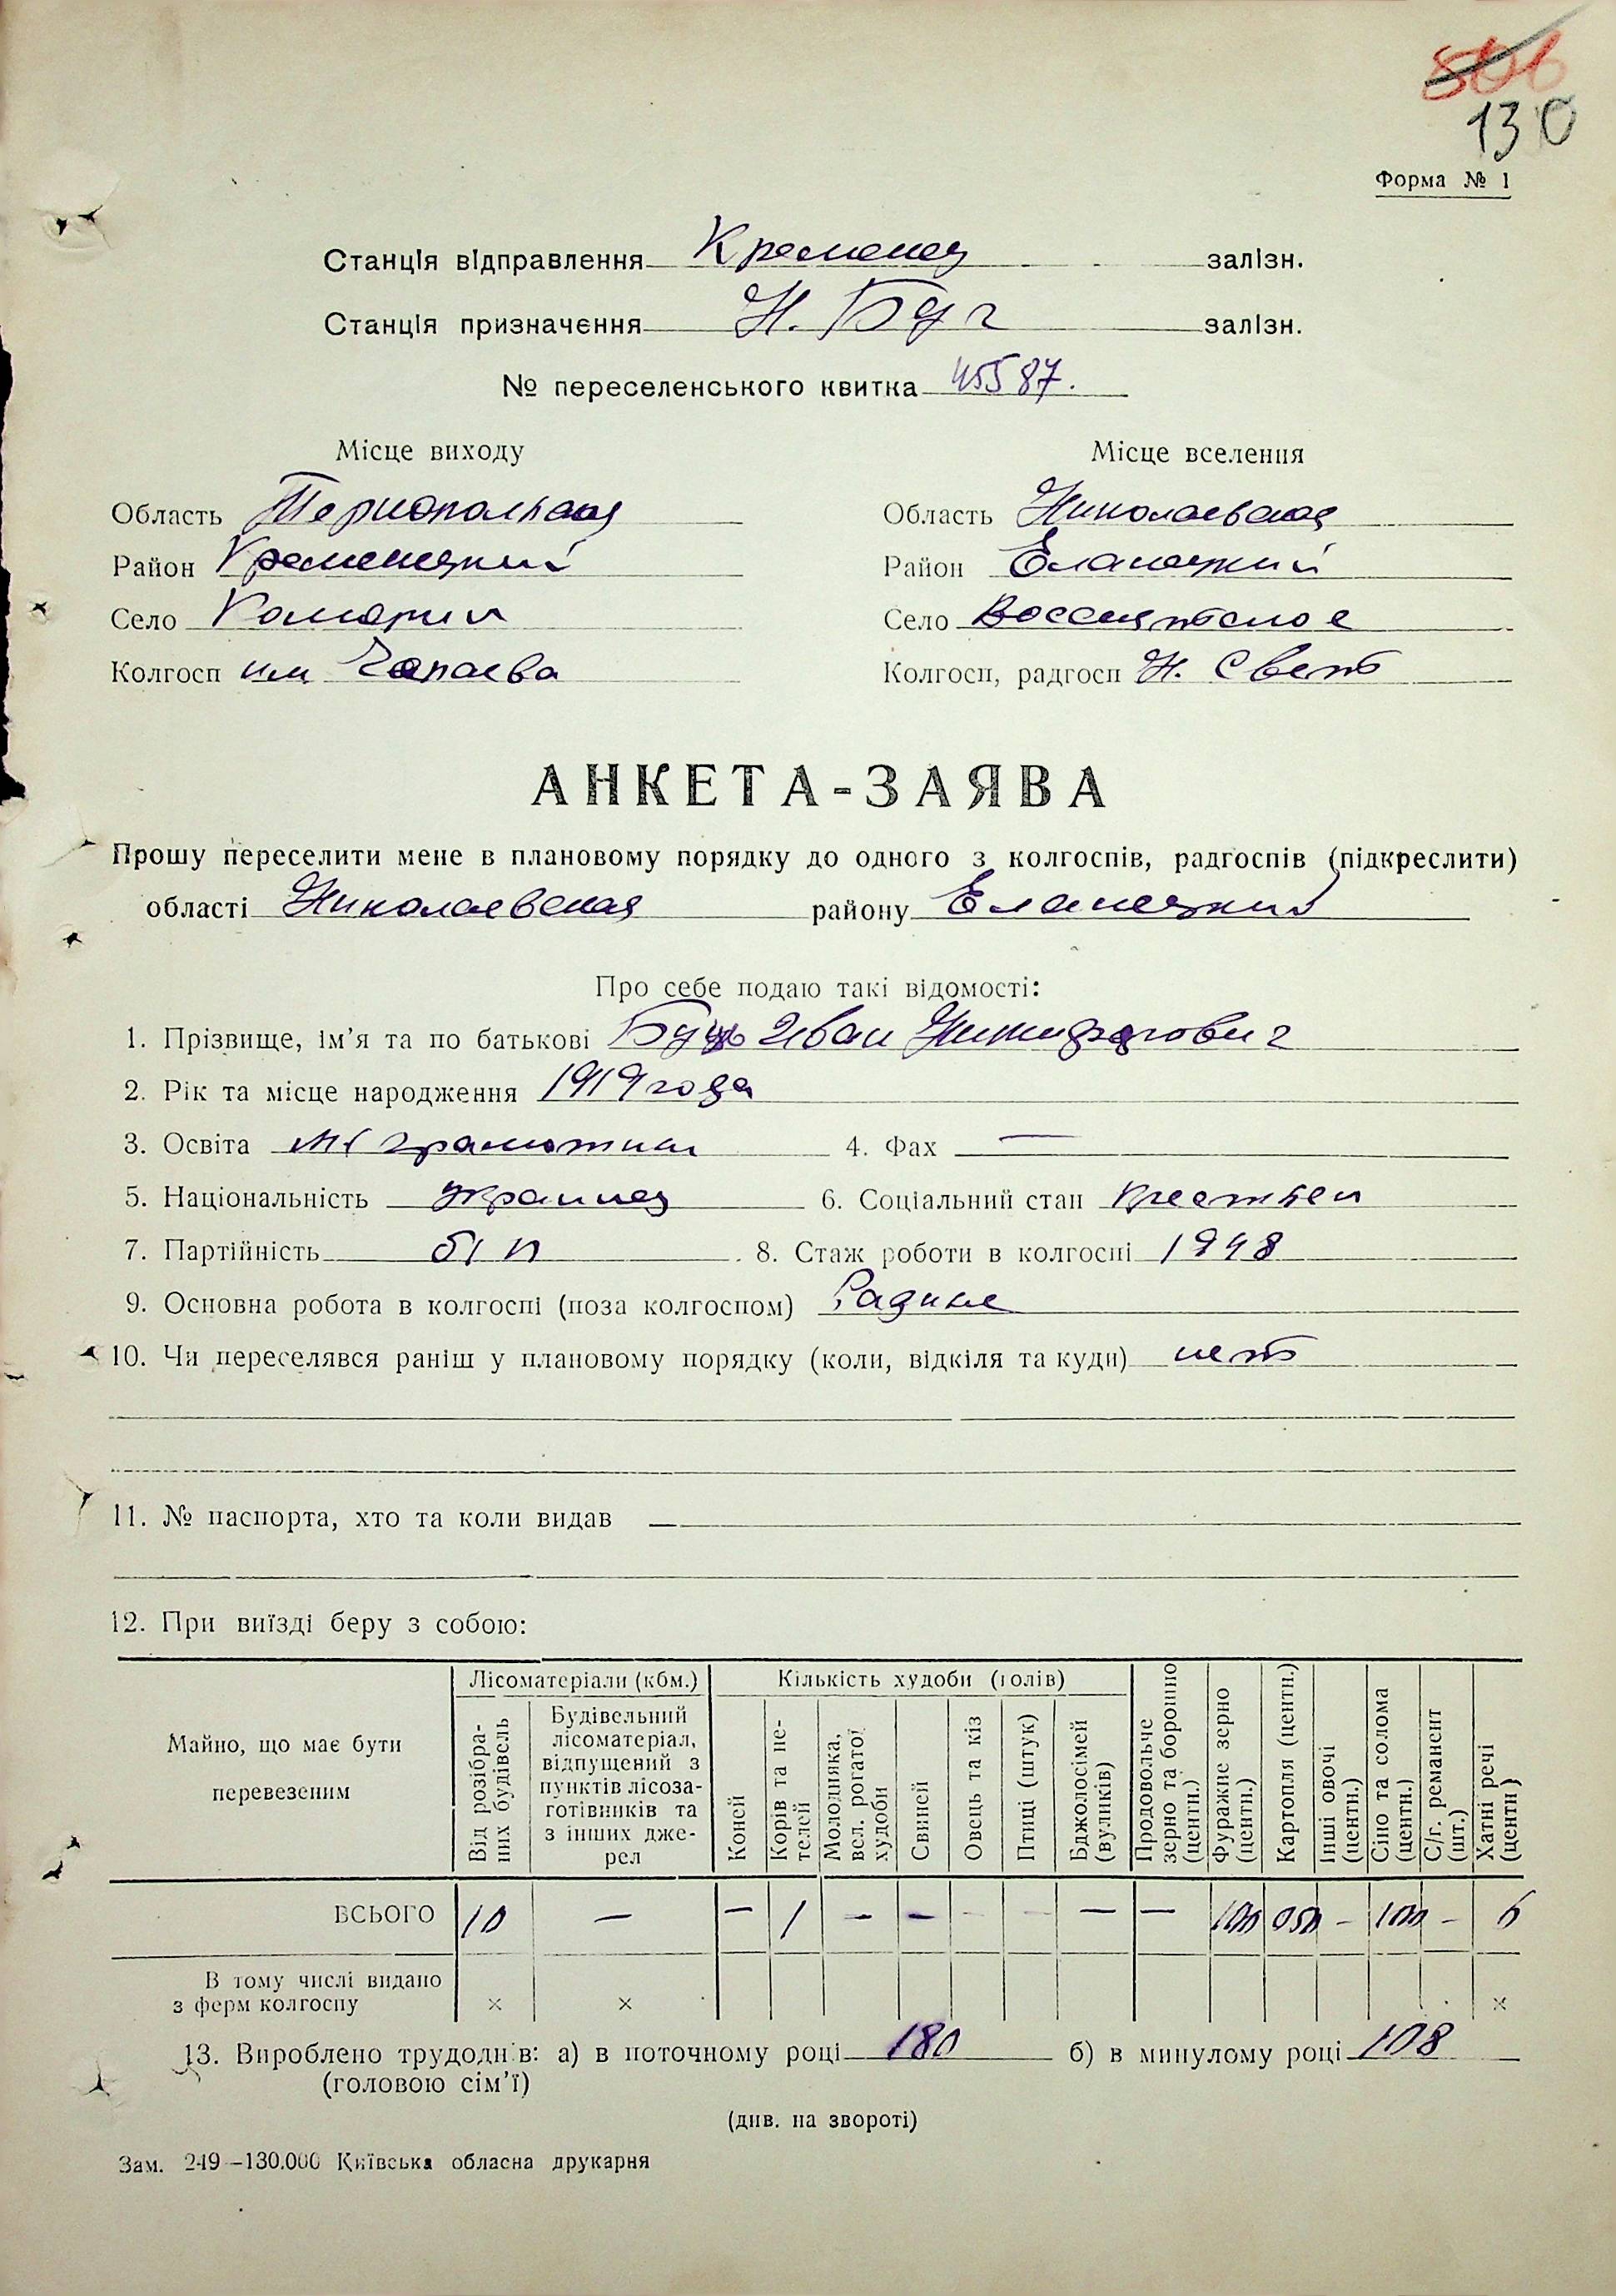 806
130
Форма № 1
Станція відправлення Кременец залізн.
Станція призначення Н. Буг залізн.
№ переселенського квитка 45587.
Місце виходу
Місце вселення
Область Тернопольская
Область Николаевская
Район Кременецкий
Район Еланецкий
Село Комарин
Село
Колгосп им Чапаева
Колгосп, радгосп Н. Свет
АНКЕТА-ЗАЯВА
Прошу переселити мене в плановому порядку до одного з колгоспів, радгоспів (підкреслити)
області Николаевская району Еланецкий
Про себе подаю такі відомості:
1. Прізвище, ім’я та по батькові Иван
2. Рік та місце народження 1919 года
3. Освіта м/грамотный 4. Фах —
5. Національність украинец 6. Соціальний стан крестьян
7. Партійність б/п 8. Стаж роботи в колгоспі 1948
9. Основна робота в колгоспі (поза колгоспом)
10. Чи переселявся раніш у плановому порядку (коли, відкіля та куди) нет
11. № паспорта, хто та коли видав —
12. При виїзді беру з собою:
Майно, що має бути перевезеним
Лісоматеріали (кбм.)
Від розібраних будівель
Будівельний лісоматеріал, відпущений з пунктів лісозаготівників та з інших джерел
Кількість худоби (голів)
Коней
Корів та нетелей
Молодняка, вел. рогатої худоби
Свиней
Овець та кіз
Птиці (штук)
Бджолосімей (вуликів)
Продовольче зерно та борошно (центн.)
Фуражне зерно (центн.)
Картопля (центн.)
Інші овочі (центн.)
Сіно та солома (центн.)
С/г. реманент (шт.)
Хатні речі (центн)
ВСЬОГО 10 — — 1 — — — — — — 100 050 — 100 — 6
В тому числі видано
з ферм колгоспу × × ×
13. Вироблено трудоднів: а) в поточному році 180 б) в минулому році 108
(головою сім’ї)
(див. на звороті)
Зам. 249—130.000 Київська обласна друкарня